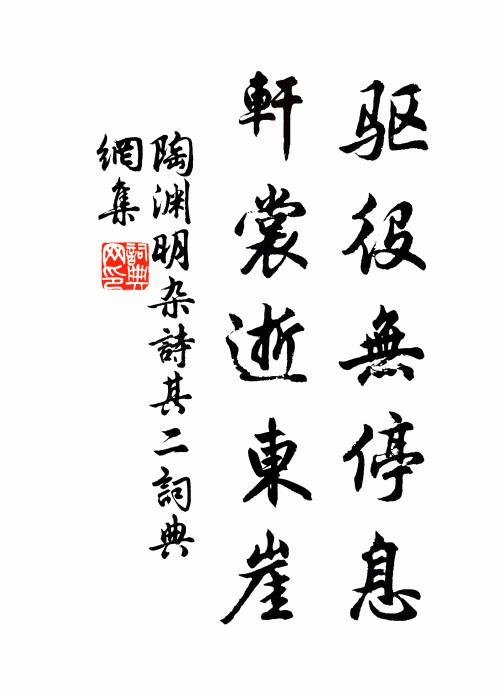 驱役無停息
軒裳逝東崖
陶渊明杂詩其二詞典
網集
詞典
网印